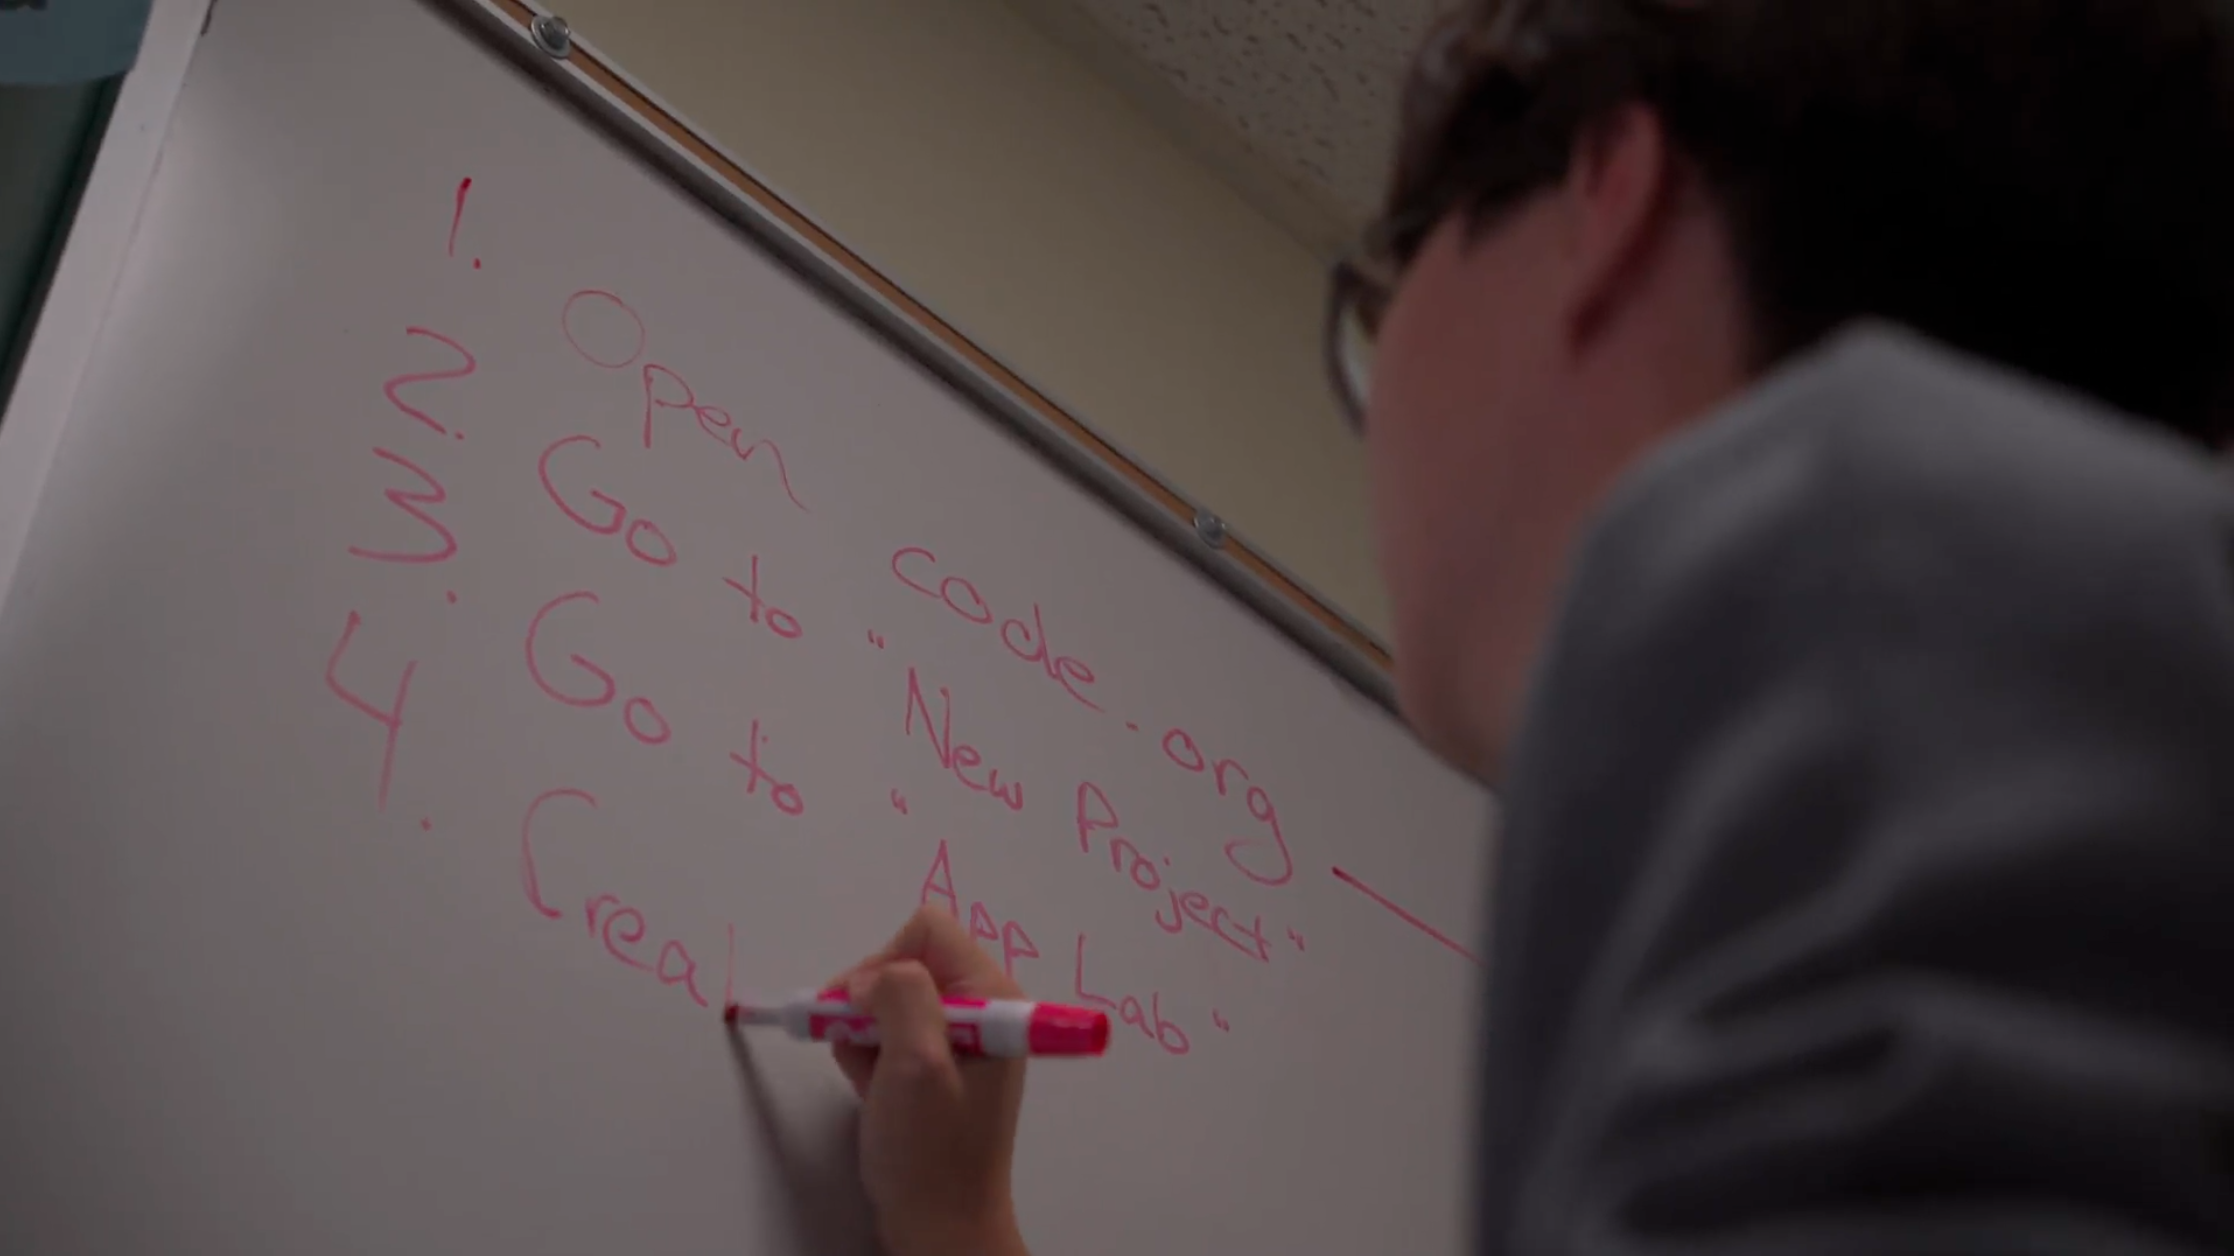 1. Open code.org
2. Go to "New Project"
3. Go to "App Lab"
4. Crea